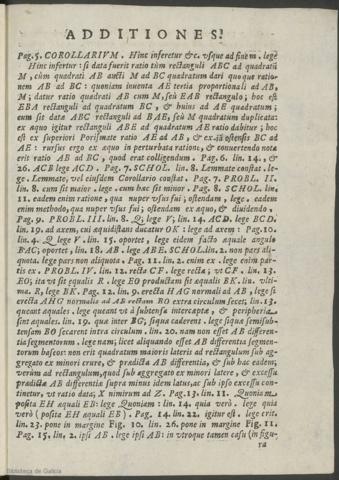 ADDITIONES.
Pag. 5. COROLLARIVM. Hinc inferetur &c. vsque ad finem. lege
Hinc infertur: si data fuerit ratio tùm rectanguli ABC ad quadratũ
M, cùm quadrati AB aucti M ad BC quadratum dari quoque ratio-
nem AB ad BC: quoniam inuenta AE tertia proportionali ad AB,
M; datur ratio quadrati AB cum M, seù EAB rectangulo; hoc est
EBA rectanguli ad quadratum BC, & huius ad AE quadratum;
cum sit data ABC rectanguli ad BAE, seù M quadratum duplicata:
ex æquo igitur rectanguli ABE ad quadratum AE ratio dabitur; hoc
est ex superiori Porismate ratio AE ad AB, & ex iis ostensis BC ad
AE: rursus ergo ex æquo in perturbata ratione, & conuertendo nota
erit ratio AB ad BC, quod erat colligendum. Pag. 6. lin. 14., &
26. ACB lege ACD. Pag. 7. SCHOL. lin. 8. Lemmate constat. le-
ge. Lemmate, vel eiusdem Corollario constat. Pag. 7. PROBL. II.
lin. 8. cum sit maior. lege. cum hac sit minor. Pag. 8. SCHOL. lin.
11. eadem enim ratione, qua nuper vsus fui; ostendam, lege. eadem
enim methodo, qua nuper vsus fui; ostendam ex æquo, & diuidendo.
Pag. 9. PROBL. III. lin. 8. Q, lege V, lin. 14. ACD. lege BCD.
lin. 19. ad axem, cui æquidistans ducatur OK: lege ad axem: Pag. 10.
lin. 4. Q lege V. lin. 15. oportet, lege eidem facto æquale angulo
PAC; oportet, lin. 18. AB. lege ABE. SCHOL. lin. 2. non pars ali-
quota. lege pars non aliquota. Pag. 11. lin. 2. enim ex. lege enim par-
tis ex. PROBL. IV. lin. 12. recta CF. lege rectæ; vt CF. lin. 13.
EO; ita vt sit equalis R. lege EO productam sit equalis BK. lin. vlti-
ma. R, lege BK. Pag. 12. lin. 9. erecta HAG normali ad AB, lege si
erecta AHG normalis ad AB rectam BO extra circulum secet, lin. 13.
queant æquales. lege queant vt à subtensa interceptæ, & peripheria
sint æquales. lin. 19. quæ inter BG; siqua caderent. lege siqua semisub-
tensam BO secarent intra circulum. lin. 20. nam non esset AB differen-
tia segmentorum. lege nam, licet aliquando esset AB differentia segmen-
torum baseos: non erit quadratum maioris lateris ad rectangulum sub ag-
gregato ex minori crure, & prædicta AB differentia, & sub hac eadem;
verùm ad rectangulum, quod sub aggregato ex minori latere, & excessu
prædictæ AB differentiæ supra minus idem latus, ac sub ipso excessu con-
tinetur, vt ratio data; X nimirum ad Z. Pag. 13. lin. 11. Quoniam
posita EH æquali EB: lege Quoniam: lin. 14. quia verò. lege quia
verò (posita EH æquali EB). Pag. 14. lin. 22. igitur est. lege erit.
lin. 23. pone in margine Fig. 10. lin. 26. pone in margine Fig. 11.
Pag. 15. lin. 2. ipsi AB. lege ipsi AB: in vtroque tamen casu (in figu-
ra
Biblioteca de Galicia